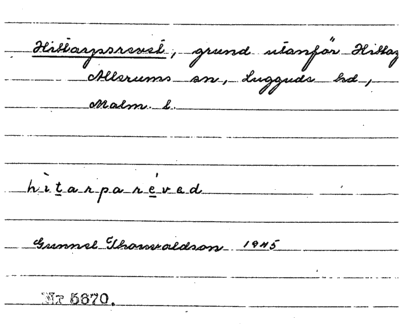 Hittarpsrevet, grund utanför Hittarp
Allerums sn, Luggude hd,
Malm. l.
hìtarparéved
Gunnel Thorvaldson 1945
Nr 5670.